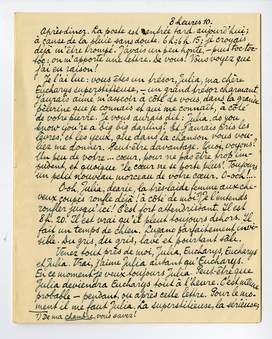 8 heures 10.
Après-diner. La poste est rentré tard, aujourd'hui;
à cause de la pluie sans doute. 6h; 6h.15; je croyais
déjà m'être trompé. J'avais un peu honte. – puis toc-toc-
toc: on m'apporte une lettre. De vous. Vous voyez que
j'ai eu raison!
Je t'ai lue: vous êtes un trésor, Julia, ma chère
Eucharys superstitieuse, – un grand trésor charmant.
J'aurais ainsi m'asseoir à côté de vous, dans la grande
pèlerine que je connais et qui me connait, à côté
de votre pierre. Je vous aurais dit: Julia, do you
know you're a big big darling? Et j'aurais pris les
lèvres, et les yeux, etc. dans chanson vous vou-
liez me donner. Peut-être davantage. Quoi, voyons!
Un peu de votre ... cœur, pour ne pas être trop im-
pudent, ou puisque "le cœur ne se porte pas". Toujours
un petit nouveau morceau de votre cœur. O-ooh!...
Ooh Julia, dearie, la très laide femme aux che-
veux rouges ronfle déjà! à côté de moi! Je l'entends
ronfler jusqu'ici! C'est fort attendrissant. Il est
8h.20. Il est vrai qu'il pleut toujours dehors. Il
fait un temps de chien. Lugano parfaitement invi-
sible. Du gris, du gris, lavé et pourtant sale.
Venez tout près de moi, Julia, Eucharys, Eucharys
et Julia. Vrai, j'aime Julia autant qu'Eucharys.
En ce moment je veux toujours Julia. Peut-être que
Julia deviendra Eucharys tout à l'heure. C'est même
probable – pendant, ou après cette lettre. Pour le mo-
ment il me faut Julia. La superstitieuse, la sérieuse,
1) De ma chambre, vous savez!